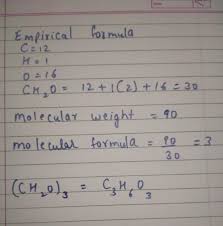 Empirical formula
C=12
H=1
O=16
CH₂O = 12+1(2)+16=30
molecular weight = 90
molecular formula = 90/30 = 3
(CH₂O)₃ = C₃H₆O₃